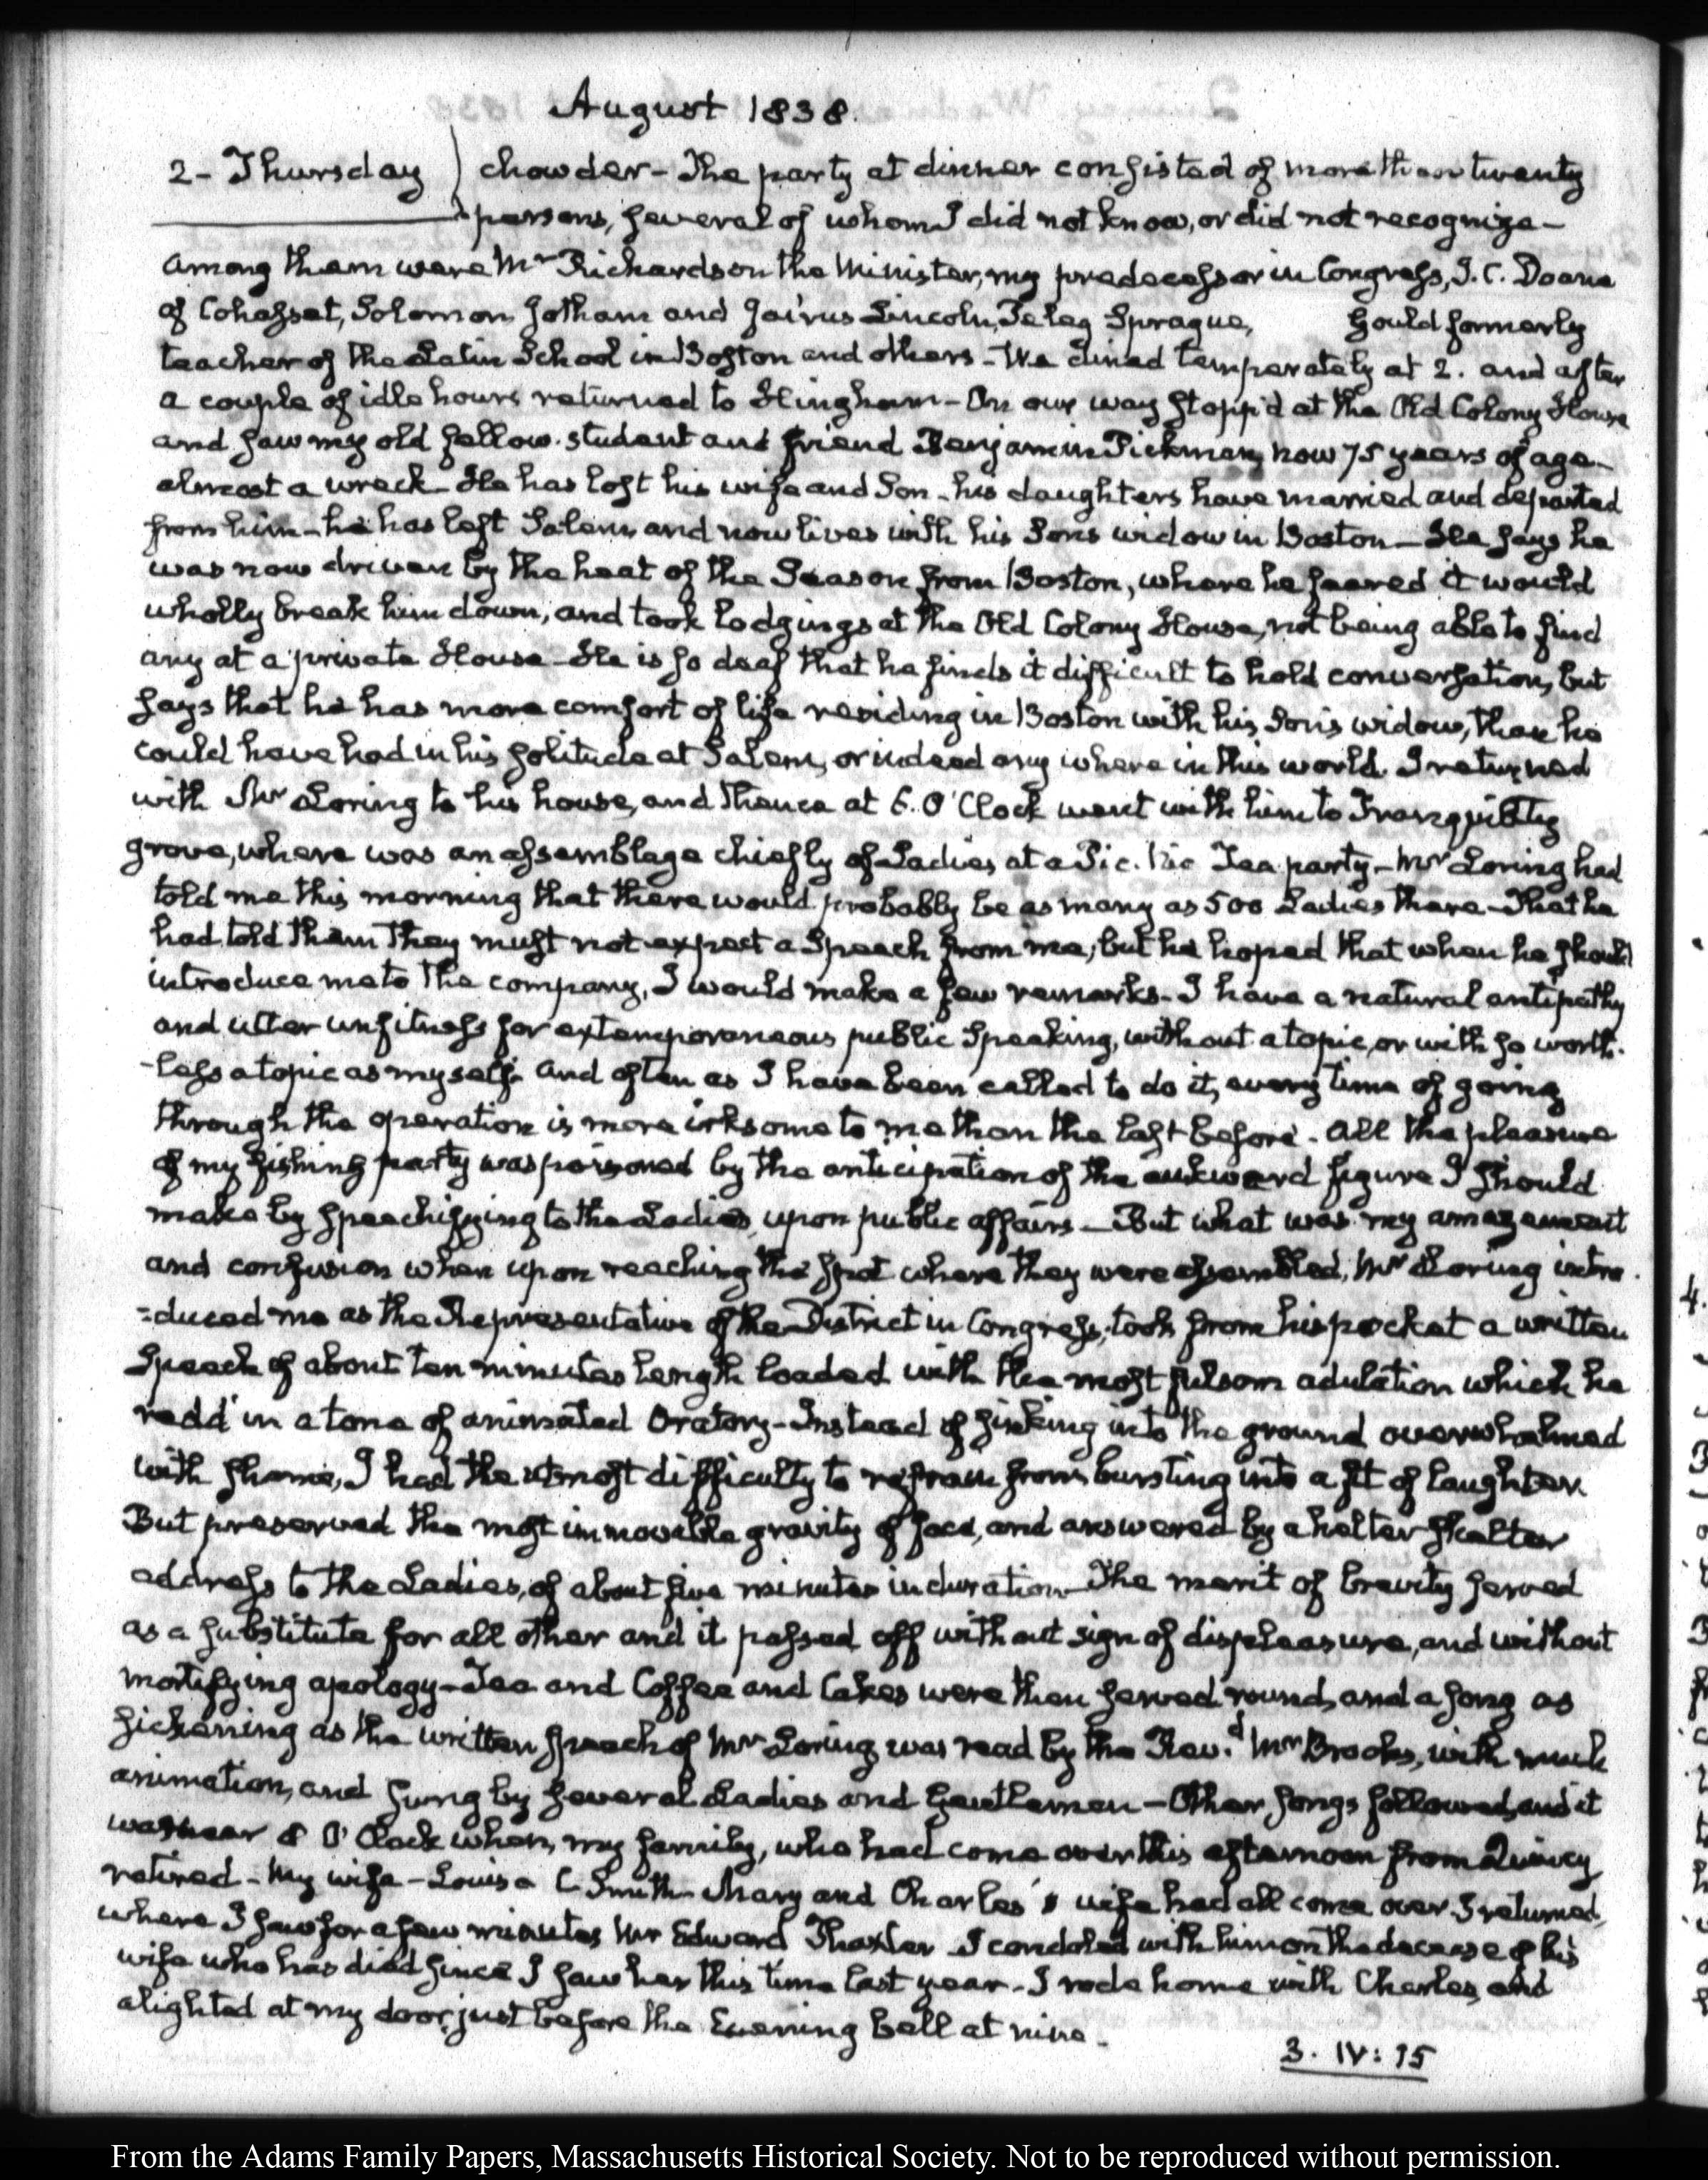 August 1838.
2 - Thursday } chowder - The party at dinner consisted of more than twenty
persons, several of whom I did not know, or did not recognize -
Among them were Mr Richardson the Minister, my predecessor in Congress, J. C. Doane
of Cohasset, Solomon Jotham and Jairus Lincoln, Peleg Sprague, Gould formerly
teacher of the Latin School in Boston and others - We dined temperately at 2. and after
a couple of idle hours returned to Hingham - On our way stopp'd at the Old Colony House
and saw my old fellow-student and friend Benjamin Pickman, now 75 years of age -
almost a wreck - He has lost his wife and Son - his daughters have married and departed
from him - he has left Salem, and now lives with his Sons widow in Boston - He says he
was now driven by the heat of the Season from Boston, where he feared it would
wholly break him down, and took lodgings at the Old Colony House, not being able to find
any at a private House - He is so deaf that he finds it difficult to hold conversation, but
says that he has more comfort of life residing in Boston with his Son's widow, than he
could have had in his solitude at Salem, or indeed any where in this world. I returned
with Mr Loring to his house, and thence at 6. O'Clock went with him to Tranquility
grove, where was an assemblage chiefly of Ladies, at a Pic. Nic Tea party - Mr Loring had
told me this morning that there would probably be as many as 500 Ladies there - That he
had told them they must not expect a Speech from me, but he hoped that when he should
introduce me to the company, I would make a few remarks - I have a natural antipathy
and utter unfitness for extemporaneous public Speaking, without a topic, or with so worth-
-less a topic as myself. And often as I have been called to do it, every time of going
through the operation is more irksome to me than the last before. All the pleasure
of my fishing party was poisoned by the anticipation of the awkward figure I should
make by speechifying to the Ladies, upon public affairs - But what was my amazement
and confusion when upon reaching the spot where they were assembled, Mr Loring intro-
=duced me as the Representative of the District in Congress, took from his pocket a written
Speech of about ten minutes length loaded with the most fulsom adulation which he
redd in a tone of animated Oratory - Instead of sinking into the ground overwhelmed
with shame, I had the utmost difficulty to refrain from bursting into a fit of laughter.
But preserved the most immovable gravity of face, and answered by a helter skelter
address to the Ladies, of about five minutes in duration. The merit of brevity served
as a substitute for all other and it passed off without sign of displeasure, and without
mortifying apology - Tea and Coffee and Cakes were then served round, and a song as
sickening as the written speech of Mr Loring was read by the Rev.d Mr Brooks, with much
animation, and sung by several Ladies and Gentlemen - Other songs followed, and it
was near 8 O'Clock when, my family, who had come over this afternoon from Quincy
retired - My wife - Louisa C Smith - Mary and Charles's wife had all come over. I returned
where I saw for a few minutes Mr Edward Thaxter I condoled with him on the decease of his
wife who has died since I saw her this time last year - I rode home with Charles, and
alighted at my door just before the Evening bell at nine.
3. IV: 15
From the Adams Family Papers, Massachusetts Historical Society. Not to be reproduced without permission.